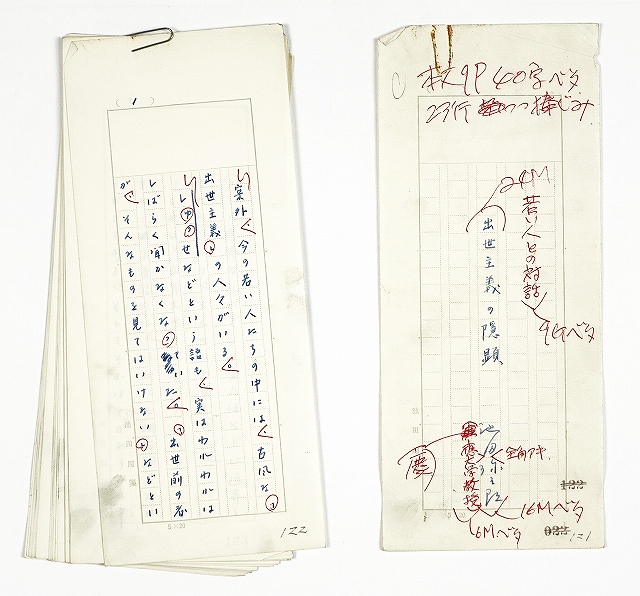 (1)
案外、今の若い人たちの中には、古風な
出世主義の人々がいる。
しゆつせなどという語も、実はわれわれは
しばらく聞かなくなっていた。出世前の者
が、そんなものを見てはいけない、などとい
5×20
122
本文9P 40字ベタ
23行
24M
若い人との対話
9ポベタ
出世主義の隠顕
池田弥三郎
慶
全角アキ
16Mベタ
16Mベタ
121